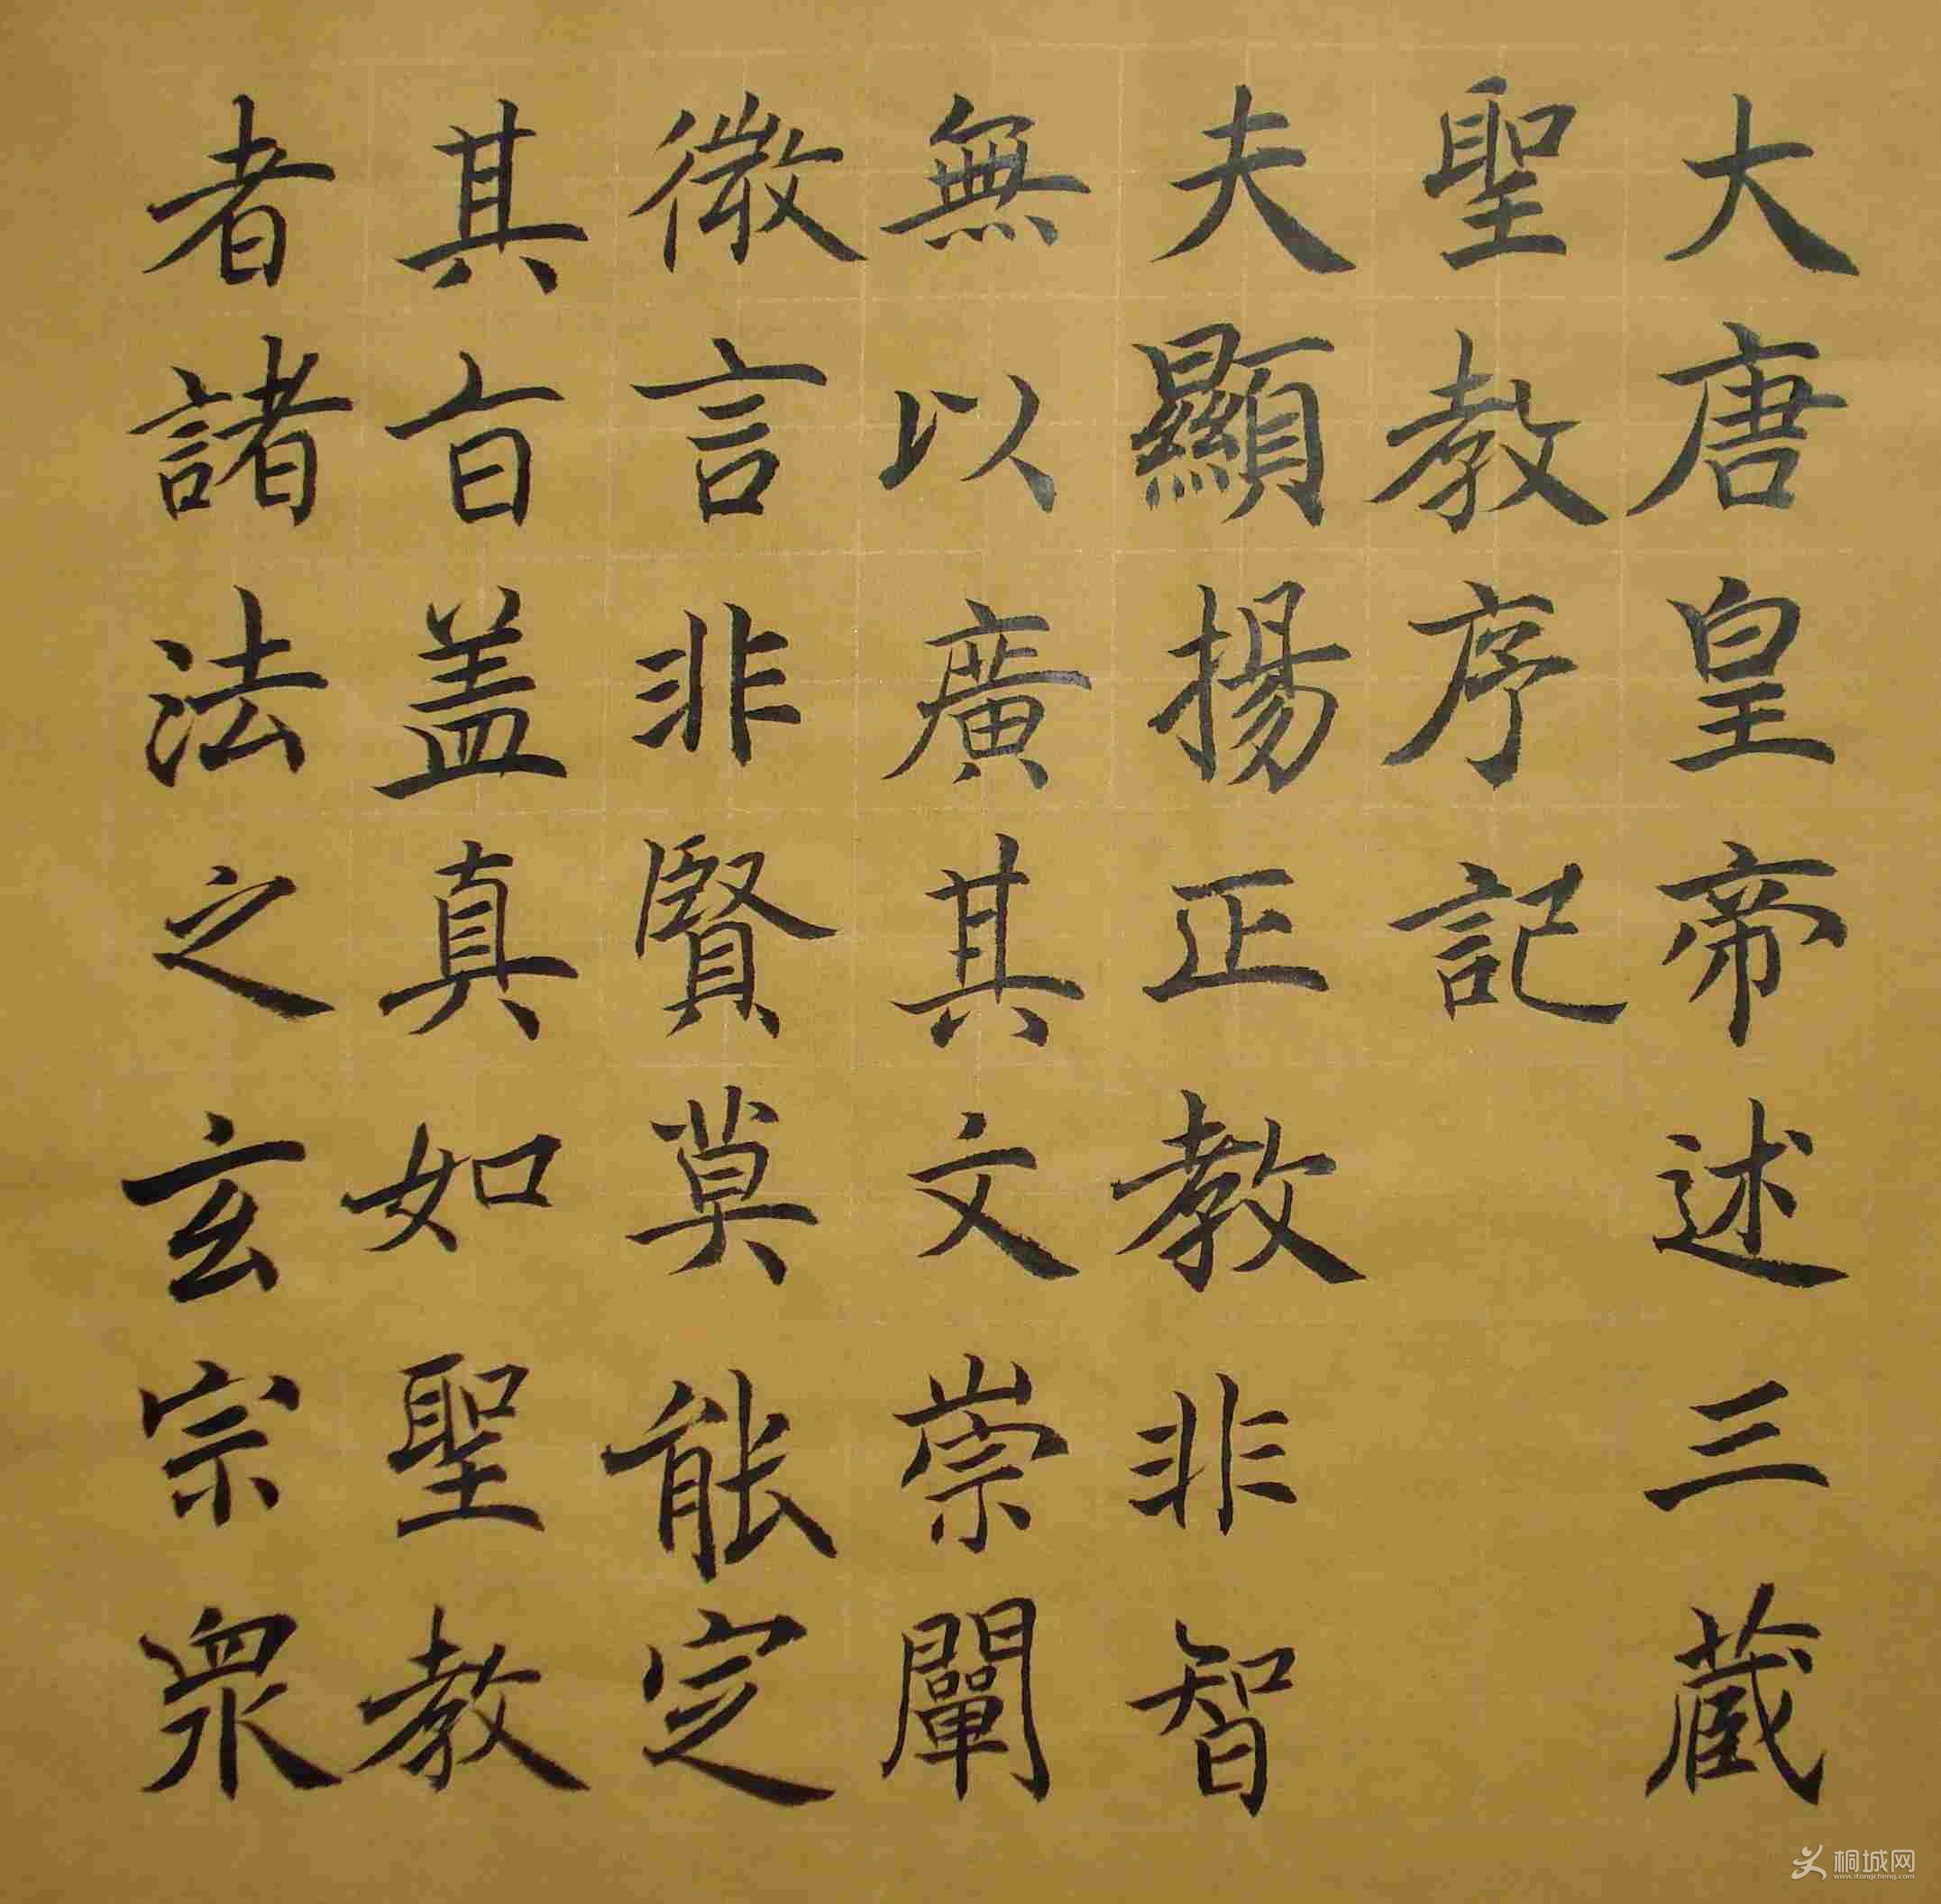 大唐皇帝述三藏
聖教序記
夫顯揚正教非智
無以廣其文崇闡
微言非賢莫能定
其旨盖真如聖教
者諸法之玄宗衆
桐城网
www.itongcheng.com